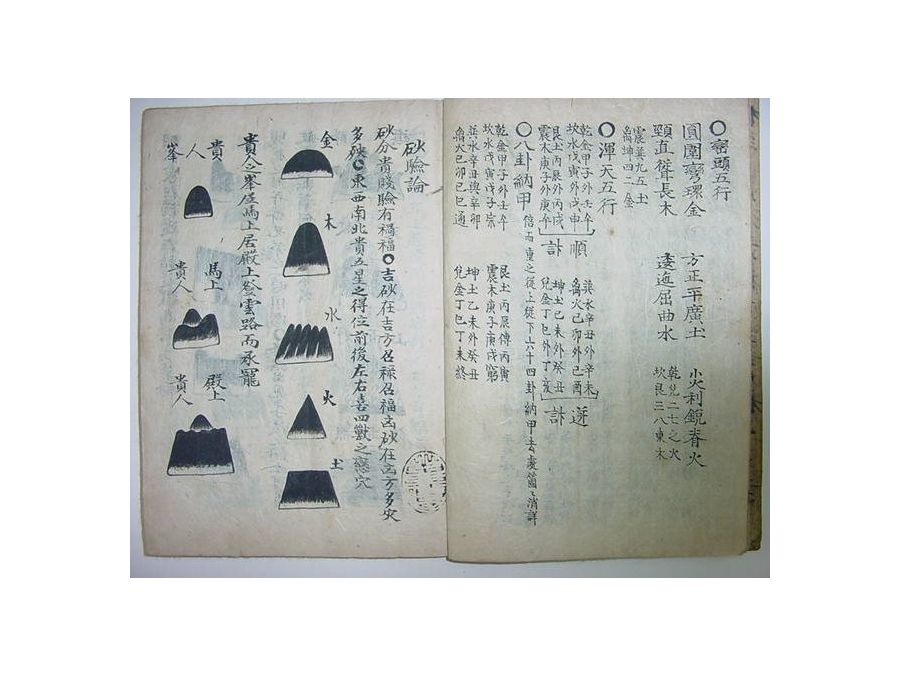 ○巒頭五行
圓圍彎環金 方正平廣土 尖利銳者火
頸直聳長木 逶迤屈曲水 乾兌二七之火
坎艮三八東木
震巽九五土
離坤四二金
○渾天五行
乾金甲子外壬午 巽木辛丑外辛未
坎水戊寅外戊申 順 離火己卯外己酉 逆
艮土丙辰外丙戌 卦 坤土乙未外癸丑 卦
震木庚子外庚午 兌金丁巳外丁亥
○八卦納甲
乾金甲子外壬午 艮土丙辰傳丙寅
坎水戊寅戊子宗 震木庚子庚戌窮
巽水辛丑與辛卯 坤土乙未外癸丑
離火己卯己巳通 兌金丁巳丁未終
砂驗論
砂分貴賤驗有禍福○吉砂在吉方召祿召福凶砂在凶方多灾
多殃○東西南北貴五星之得位前後左右喜四獸之戀穴
金
木
水
火
土
貴人峯屋馬上居嚴上登雲路而承寵
貴人峯
馬上貴人
殿上貴人